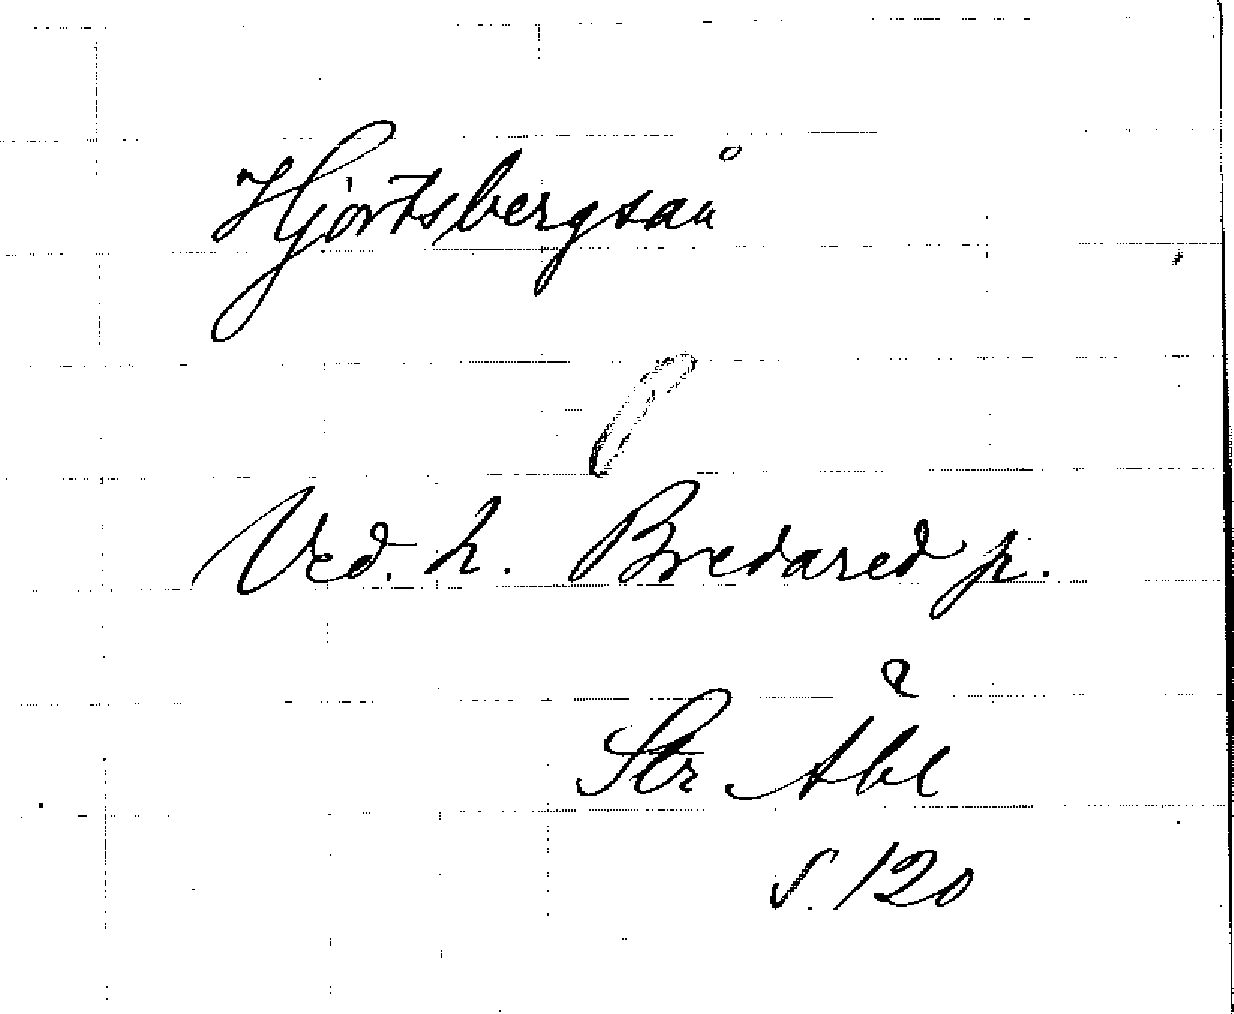 Hjortsbergsån
Ved. h. Bredared p.
Str Åbl
S. 120